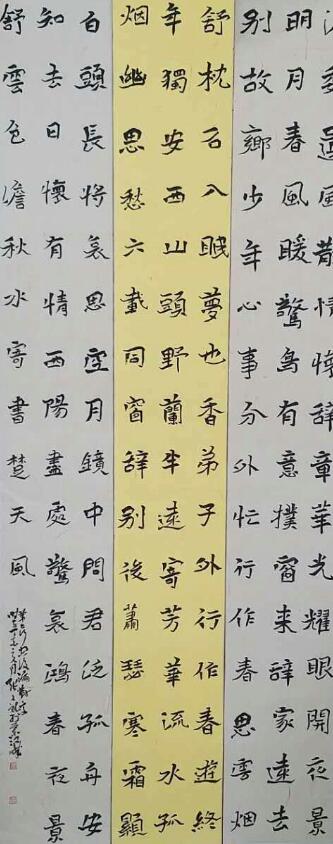 風散情懷辞章華光耀眼開夜景
明月春風暖驚鳥有意撲窗来辞家遠去
别故鄉少年心事分外忙行作春思雲烟
舒枕石入眠夢也香弟子外行作春遊終
年獨安西山頭野蘭李遠寄芳華流水孤
烟幽思愁六載同窗辞别後蕭瑟寒霜顯
白頭長將哀思空月鏡中問君泛孤舟安
知去日懷有情西陽盡處驚哀鴻春夜景
舒雲色澹秋水寄書楚天風